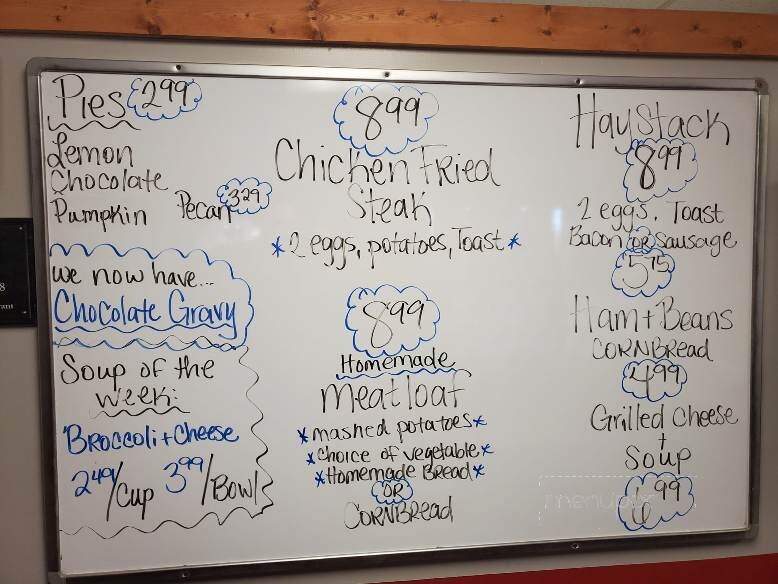 Pies 2.99
Lemon
Chocolate
Pumpkin Pecan 3.29
we now have...
Chocolate Gravy
Soup of the
week:
Broccoli + Cheese
2.49/Cup 3.99/Bowl
8.99
Chicken Fried
Steak
*2 eggs, potatoes, Toast*
8.99
Homemade
meatloaf
*mashed potatoes*
*choice of vegetable*
*Homemade Bread*
OR
CORNBREAD
Haystack
8.99
2 eggs, Toast
Bacon OR Sausage
5.75
Ham + Beans
CORNBREAD
4.99
Grilled Cheese
+
Soup
6.99
menupix
8